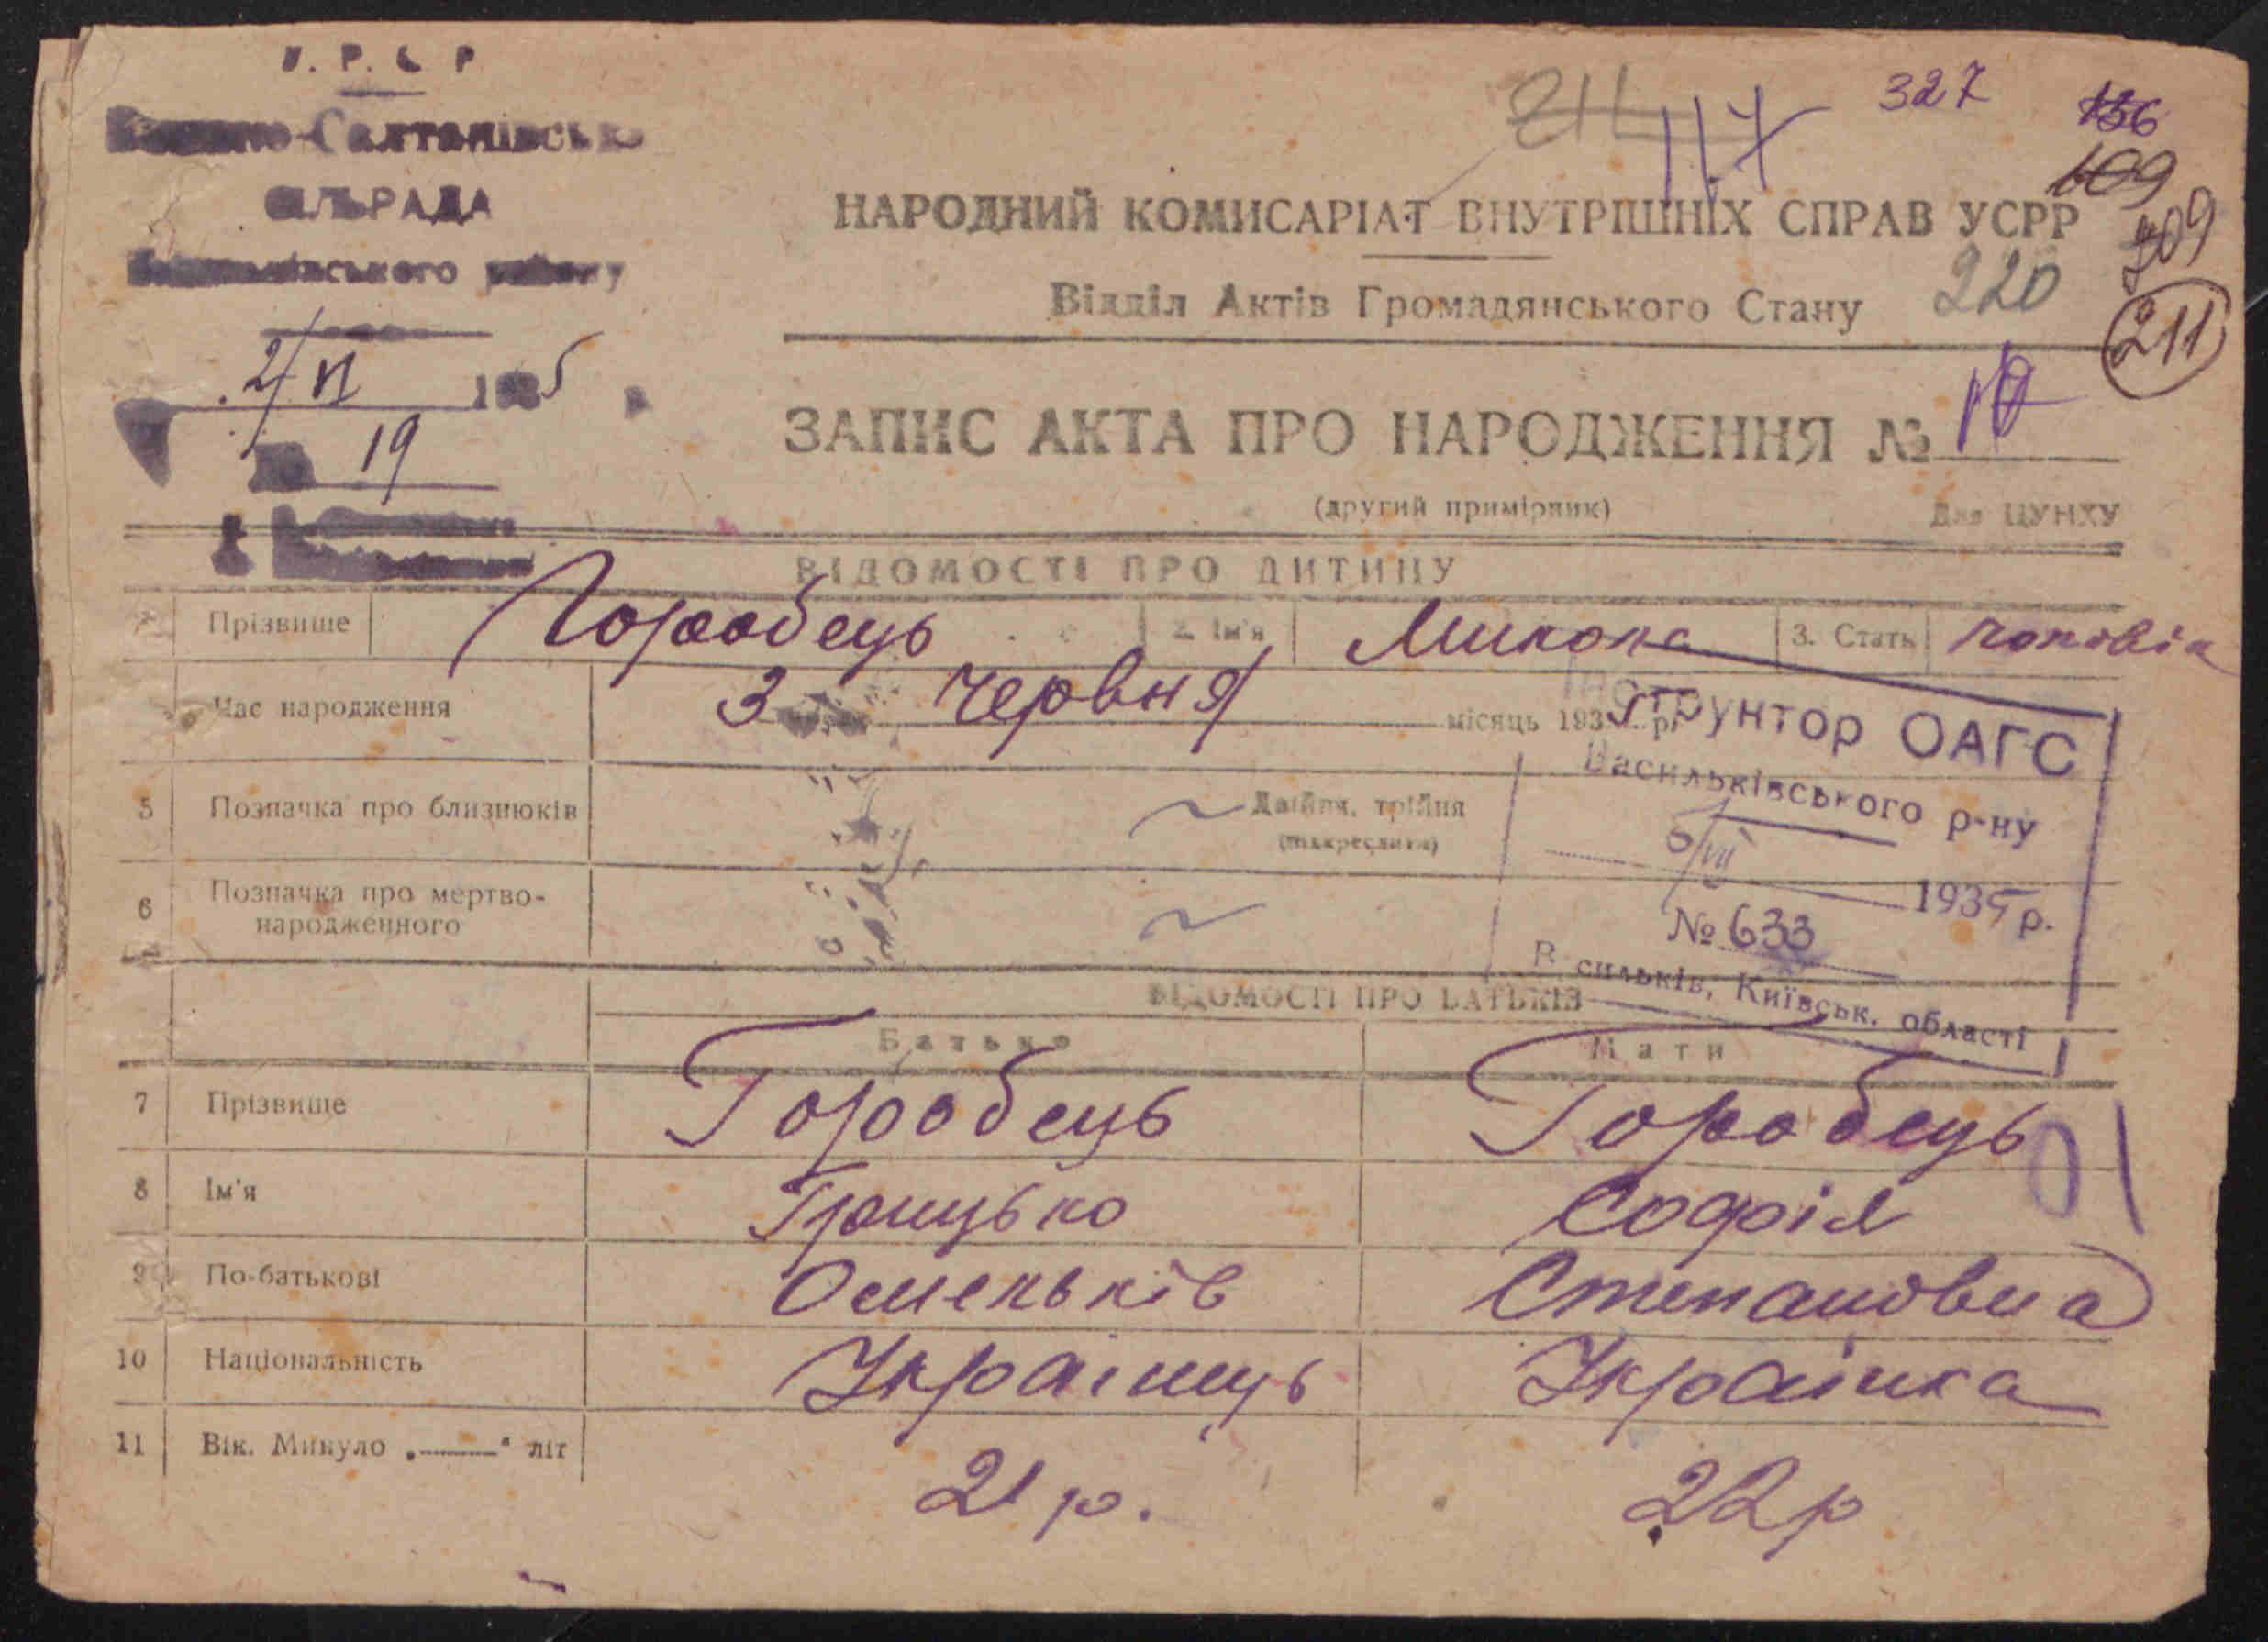 У. Р. С. Р
Салтанівськ
СІЛЬРАДА
2/VI 1935 р
№ 19
211
117
327
136
109
709
НАРОДНИЙ КОМИСАРІАТ ВНУТРІШНІХ СПРАВ УСРР
Відділ Актів Громадянського Стану
220
211
ЗАПИС АКТА ПРО НАРОДЖЕННЯ №
(другий примірник)
Для ЦУНХУ
ВІДОМОСТІ ПРО ДИТИНУ
Прізвище Горобець 2. Ім'я Микола 3. Стать чоловіч
Час народження 3 червня місяць 1935 р.
Інструктор ОАГС
Васильківського р-ну
5/VII 1935 р.
№ 633
Васильків, Київськ. області
5 Позначка про близнюків Двійня, трійня
(підкреслити)
6 Позначка про мертво-
народженного
ВІДОМОСТІ ПРО БАТЬКІВ
Батько Мати
7 Прізвище Горобець Горобець
8 Ім'я Грицько Софія
9 По-батькові Омельків Степановна
10 Національність Українець Українка
11 Вік. Минуло „——“ літ 21 р. 22 р